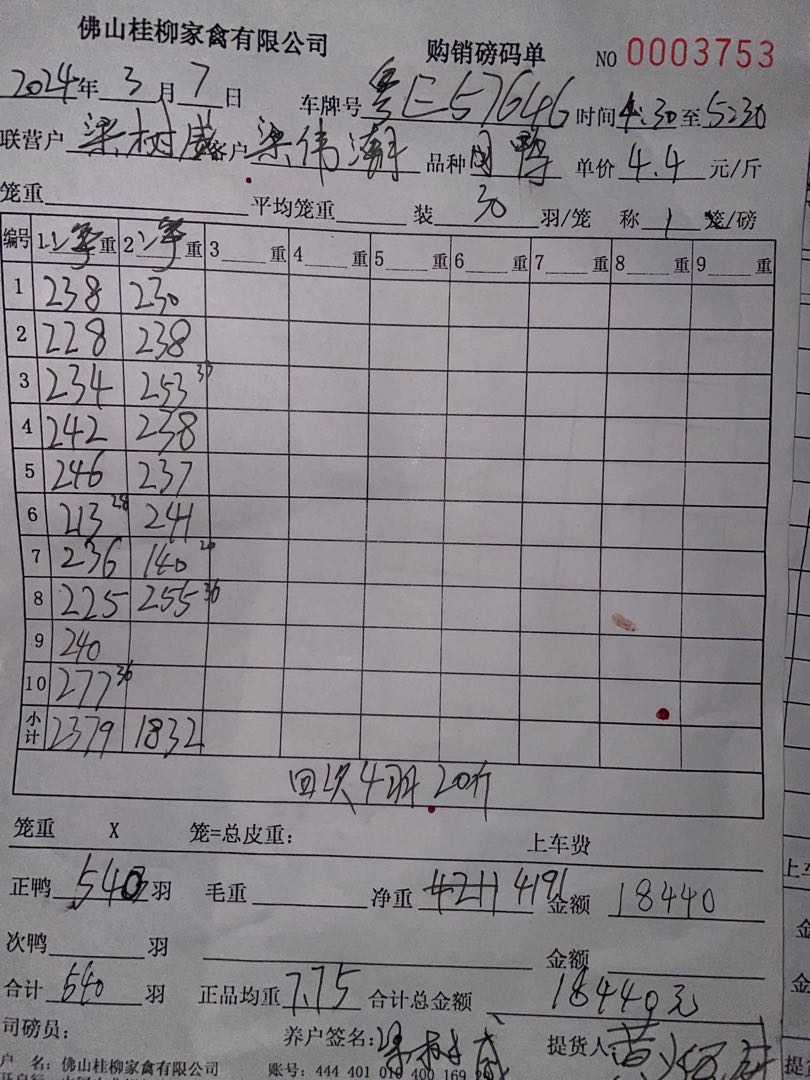 佛山桂柳家禽有限公司 购销磅码单 NO 0003753
2024年 3 月 7 日 车牌号 粤E57646 时间 4:30 至 5:30
联营户 梁树威 客户 梁伟潮 品种 鸭 单价 4.4 元/斤
笼重 平均笼重 装 30 羽/笼 称 1 笼/磅
编号 1 重 2 重 3 重 4 重 5 重 6 重 7 重 8 重 9 重
1 238 230
2 228 238
3 234 253 33
4 242 238
5 246 237
6 213 28 241
7 236 140 20
8 225 255 36
9 240
10 277 36
小计 2379 1832
回次4羽 20斤
笼重 X 笼=总皮重: 上车费
正鸭 540 羽 毛重 净重 4211 4191 金额 18440
次鸭 羽 金额
合计 540 羽 正品均重 7.75 合计总金额 18440元
司磅员: 养户签名: 梁树威 提货人
户 名: 佛山桂柳家禽有限公司 账号: 444 401 010 400 169